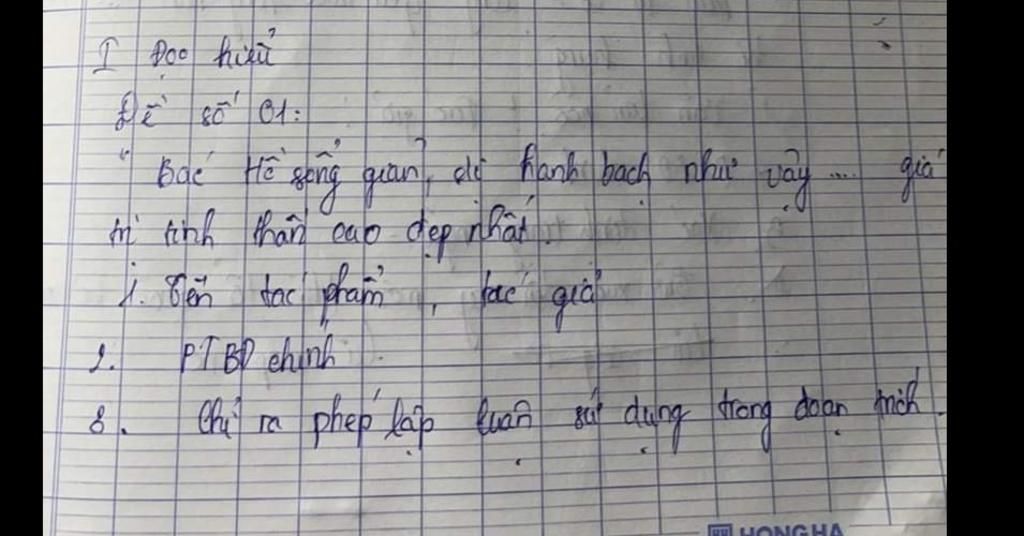 I Đọc hiểu
Đề số 01:
" Bác Hồ sống giản dị thanh bạch như vậy .... giá
trị tinh thần cao đẹp nhất.
1. Tên tác phẩm, tác giả
2. PTBĐ chính
3. Chỉ ra phép lập luận sử dụng trong đoạn trích.
HONG HA